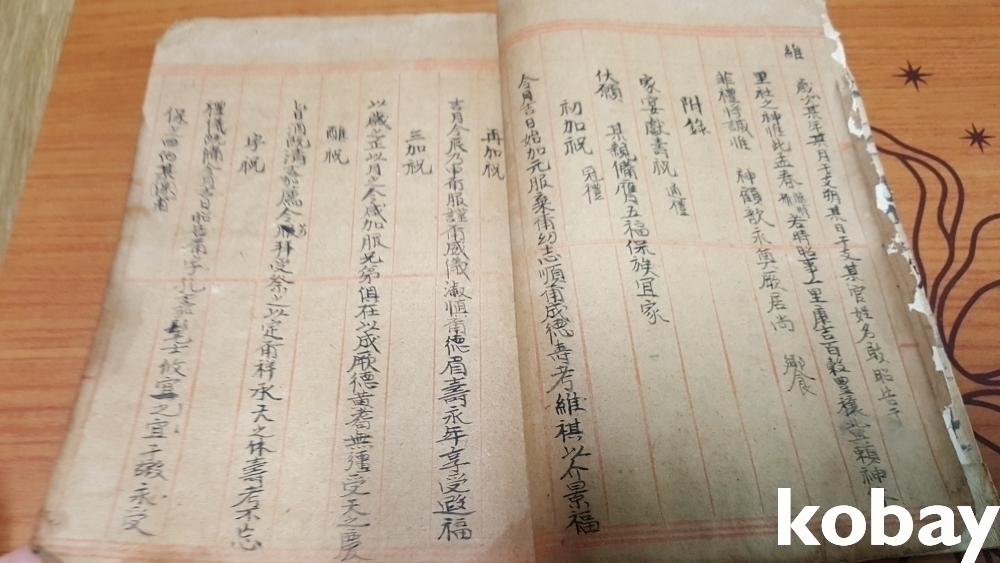 維
歲次某年某月干支朔某日干支某官姓名敢昭告于
里社之神惟此孟春 若時昭事 里康吉百穀豊穰 賴神
菲禮將誠惟 神顧歆永奠厥居尚 饗
附錄
家宴獻壽祝 
伏願 某親備膺五福保族宜家
初加祝 冠禮
今月吉日始加元服棄甭幼志順甭成德壽考維祺以介景福
再加祝
吉月令辰乃申甭服謹甭威儀淑愼甭德眉壽永年享受遐福
三加祝
以歲之正以月之令咸加甭服兄弟俱在以成厥德黃耇無疆受天之慶
醮祝
旨酒既淸嘉薦令芳拜受祭之以定甭祥承天之休壽考不忘
字祝
禮儀既備令月吉日昭告甭字孔嘉髦士攸宜宜之于嘏永受
保之曰
kobay